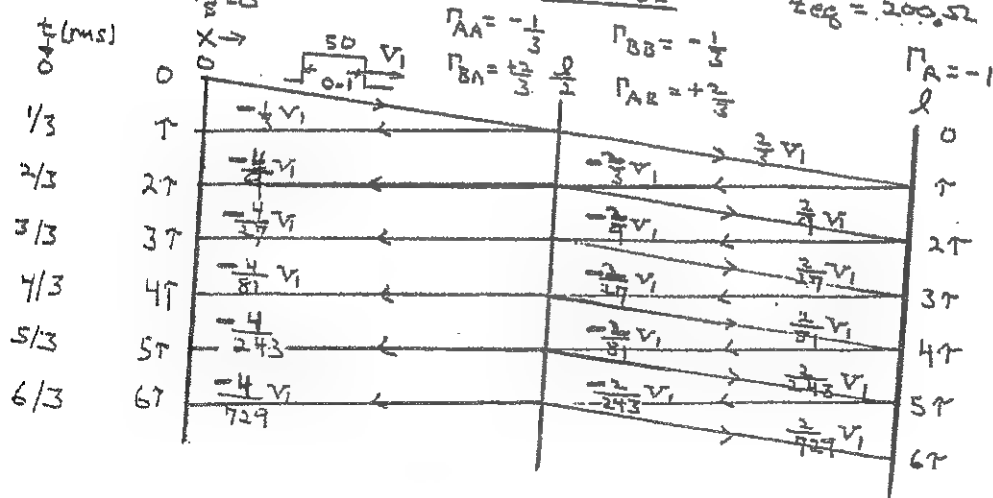 t (ms)
0
x →
0
50
0.1
V₁
Γ_AA = -1/3
Γ_BA = +2/3
l/2
Γ_BB = -1/3
Γ_AB = +2/3
Zeq = 200Ω
Γ_A = -1
l
0
0
1/3
τ
-1/3 V₁
2/3 V₁
2/3
2τ
V₁
-2/3 V₁
τ
3/3
3τ
-4/27 V₁
-2/9 V₁
2/9 V₁
2τ
4/3
4τ
-4/81 V₁
-2/27 V₁
2/27 V₁
3τ
5/3
5τ
-4/243
-2/81 V₁
2/81 V₁
4τ
6/3
6τ
-4/729 V₁
-2/243 V₁
2/243 V₁
5τ
2/729 V₁
6τ